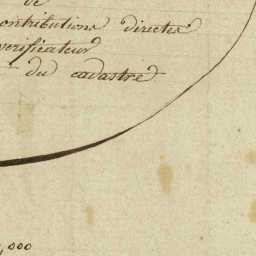 de
contributions directes
verificateur
du cadastre
,000